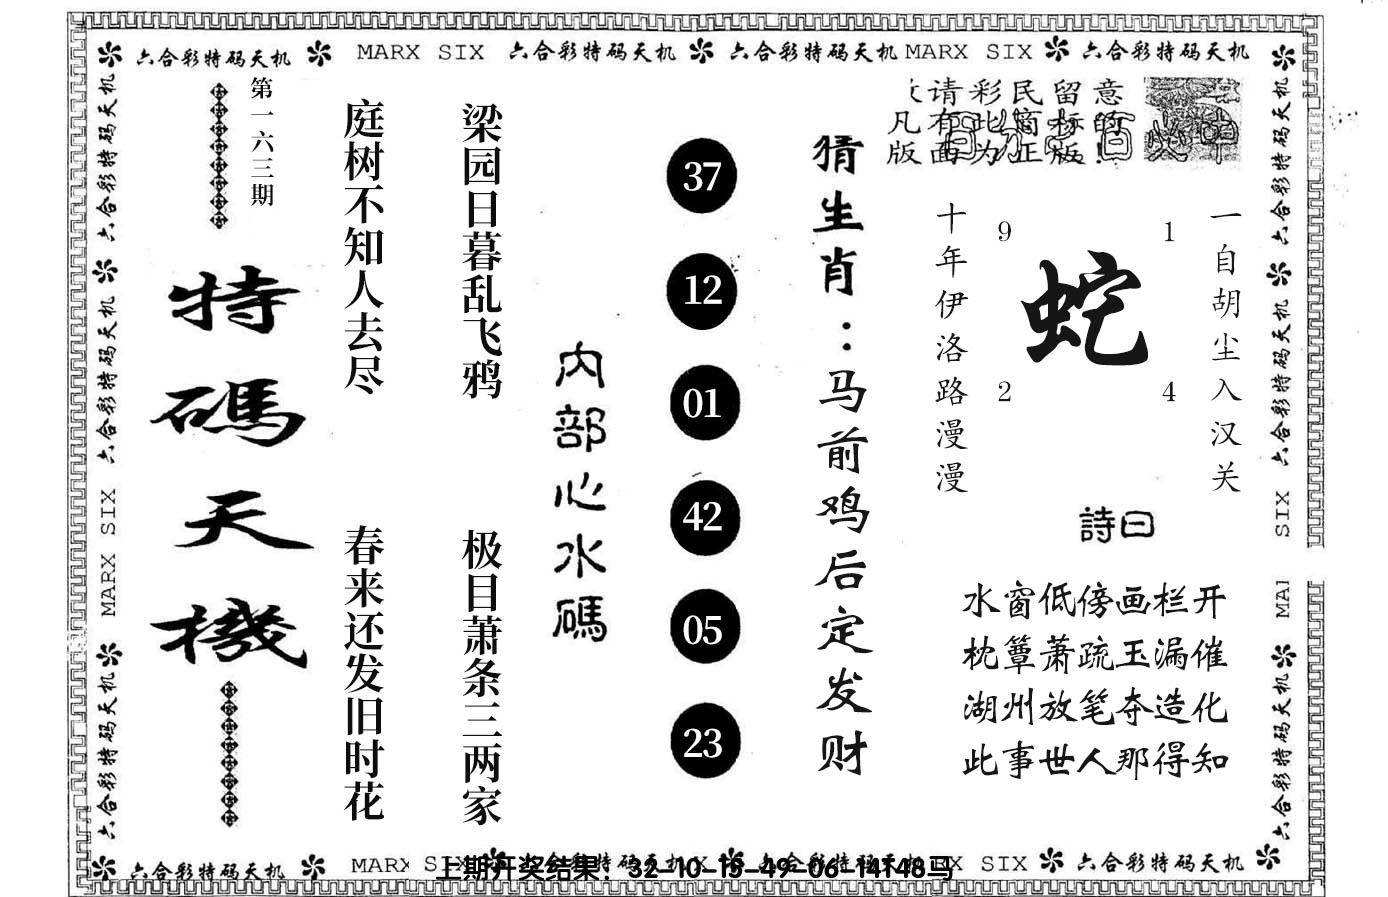 六合彩特码天机 MARX SIX 六合彩特码天机 六合彩特码天机 MARX SIX 六合彩特码天机
请彩民留意
凡有此商标的
版面为正版!
一自胡尘入汉关
十年伊洛路漫漫
9 1
蛇
2 4
詩曰
水窗低傍画栏开
枕簟萧疏玉漏催
湖州放笔夺造化
此事世人那得知
猜生肖:马前鸡后定发财
37
12
01
42
05
23
内部心水碼
梁园日暮乱飞鸦
极目萧条三两家
庭树不知人去尽
春来还发旧时花
第一六三期
特碼天機
六合彩特码天机
六合彩特码天机
MARX SIX
六合彩特码天机
六合彩特码天机
六合彩特码天机
SIX
六合彩特码天机
六合彩特码天机 MARX
上期开奖结果:32-10-15-49-06-14148马
SIX 六合彩特码天机